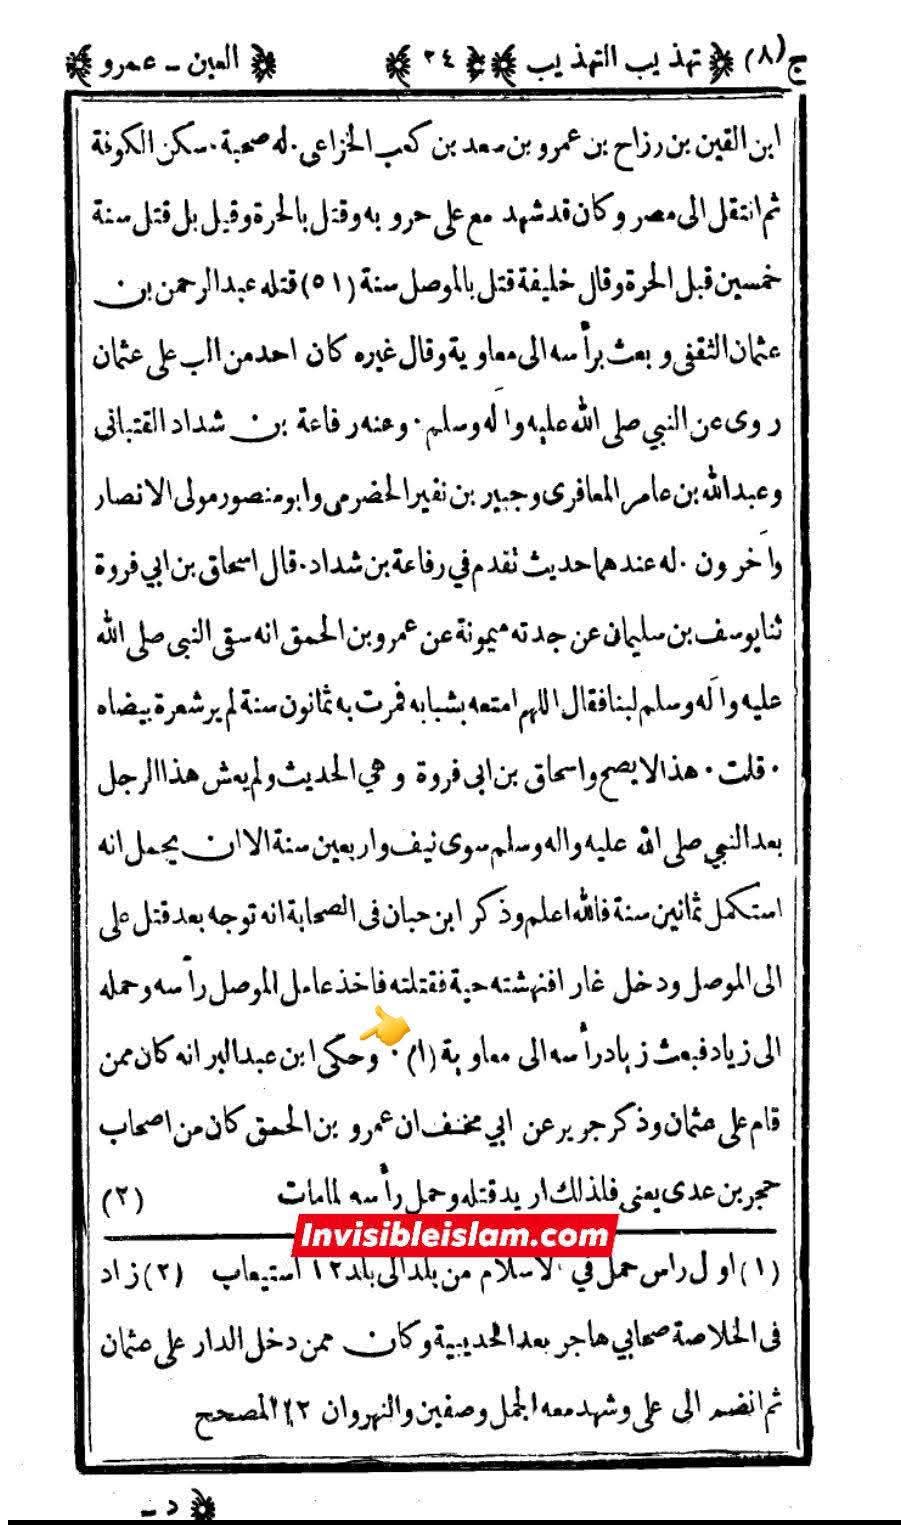 ج (٨) ﴿ تهذيب التهذيب ﴾ ﴿ ٢٤ ﴾ ﴿ العين ـ عمرو ﴾
ابن القين بن رزاح بن عمرو بن سعد بن كعب الخزاعى . له صحبة . سكن الكوفة
ثم انتقل الى مصر وكان قد شهد مع على حروبه وقتل بالحرة وقيل بل قتل سنة
خمسين قبل الحرة وقال خليفة قتل بالموصل سنة (٥١) قتله عبد الرحمن بن
عثمان الثقفى وبعث برأسه الى معاوية وقال غيره كان احد من الب على عثمان
روى عن النبي صلى الله عليه وآله وسلم . وعنه رفاعة بن شداد القتبانى
وعبد الله بن عامر المعافرى وجبير بن نفير الحضرمى وابو منصور مولى الانصار
وآخرون . له عندهما حديث تقدم في رفاعة بن شداد . قال اسحاق بن ابي فروة
ثنا يوسف بن سليمان عن جدته ميمونة عن عمرو بن الحمق انه سقى النبى صلى الله
عليه وآله وسلم لبنا فقال اللهم امتعه بشبابه فمرت به ثمانون سنة لم ير شعرة بيضاه
. قلت . هذا لا يصح واسحاق بن ابى فروة وهي الحديث ولم يعش هذا الرجل
بعد النبي صلى الله عليه واله وسلم سوى نيف واربعين سنة الا ان يحمل انه
استكمل ثمانين سنة فالله اعلم وذكر ابن حبان فى الصحابة انه توجه بعد قتل على
الى الموصل ودخل غار افنهشته حية فقتلته فاخذ عامل الموصل رأسه وحمله
الى زياد فبعث زياد رأسه الى معاوية (١) . وحكى ابن عبد البر انه كان ممن
قام على عثمان وذكر جرير عن ابي مخنف ان عمرو بن الحمق كان من اصحاب
حجر بن عدى يعنى فلذلك اريد قتله وحمل رأسه لما مات (٢)
Invisibleislam.com
(١) اول راس حمل في الاسلام من بلد الى بلد ١٢ استيعاب (٢) زاد
فى الخلاصة صحابي هاجر بعد الحديبية وكان ممن دخل الدار على عثمان
ثم انضم الى على وشهد معه الجمل وصفين والنهروان ١٢ المصحح